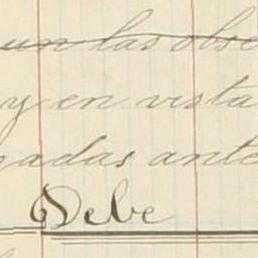 un las obse
y en vista
gadas ante
Debe